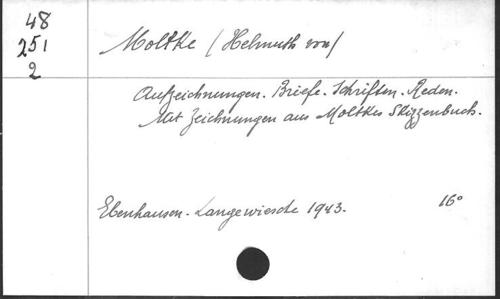 48
251
2
Moltke (Helmuth von)
Aufzeichnungen. Briefe. Schriften. Reden.
Mit Zeichnungen aus Moltkes Skizzenbuch.
Ebenhausen. Langewiesche 1943. 16°